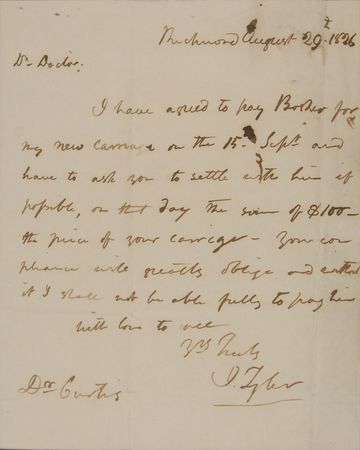 Richmond August 29th 1826
Dr Doctor.
I have agreed to pay Bosher for
my new carriage on the 15th Sept. and
have to ask you to settle with him if
possible, on that day the sum of $100—
the price of your carriage — Your com
pliance will greatly oblige and without
it I shall not be able fully to pay him
with love to all
Yrs Truly
J. Tyler
Dr Curtis